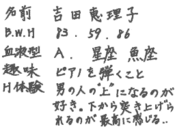 名前 吉田恵理子
B.W.H 83.59.86
血液型 A. 星座 魚座
趣味 ピアノを弾くこと
H体験 男の人の"上"になるのが
好き。下から突き上げら
れるのが最高に感じる..